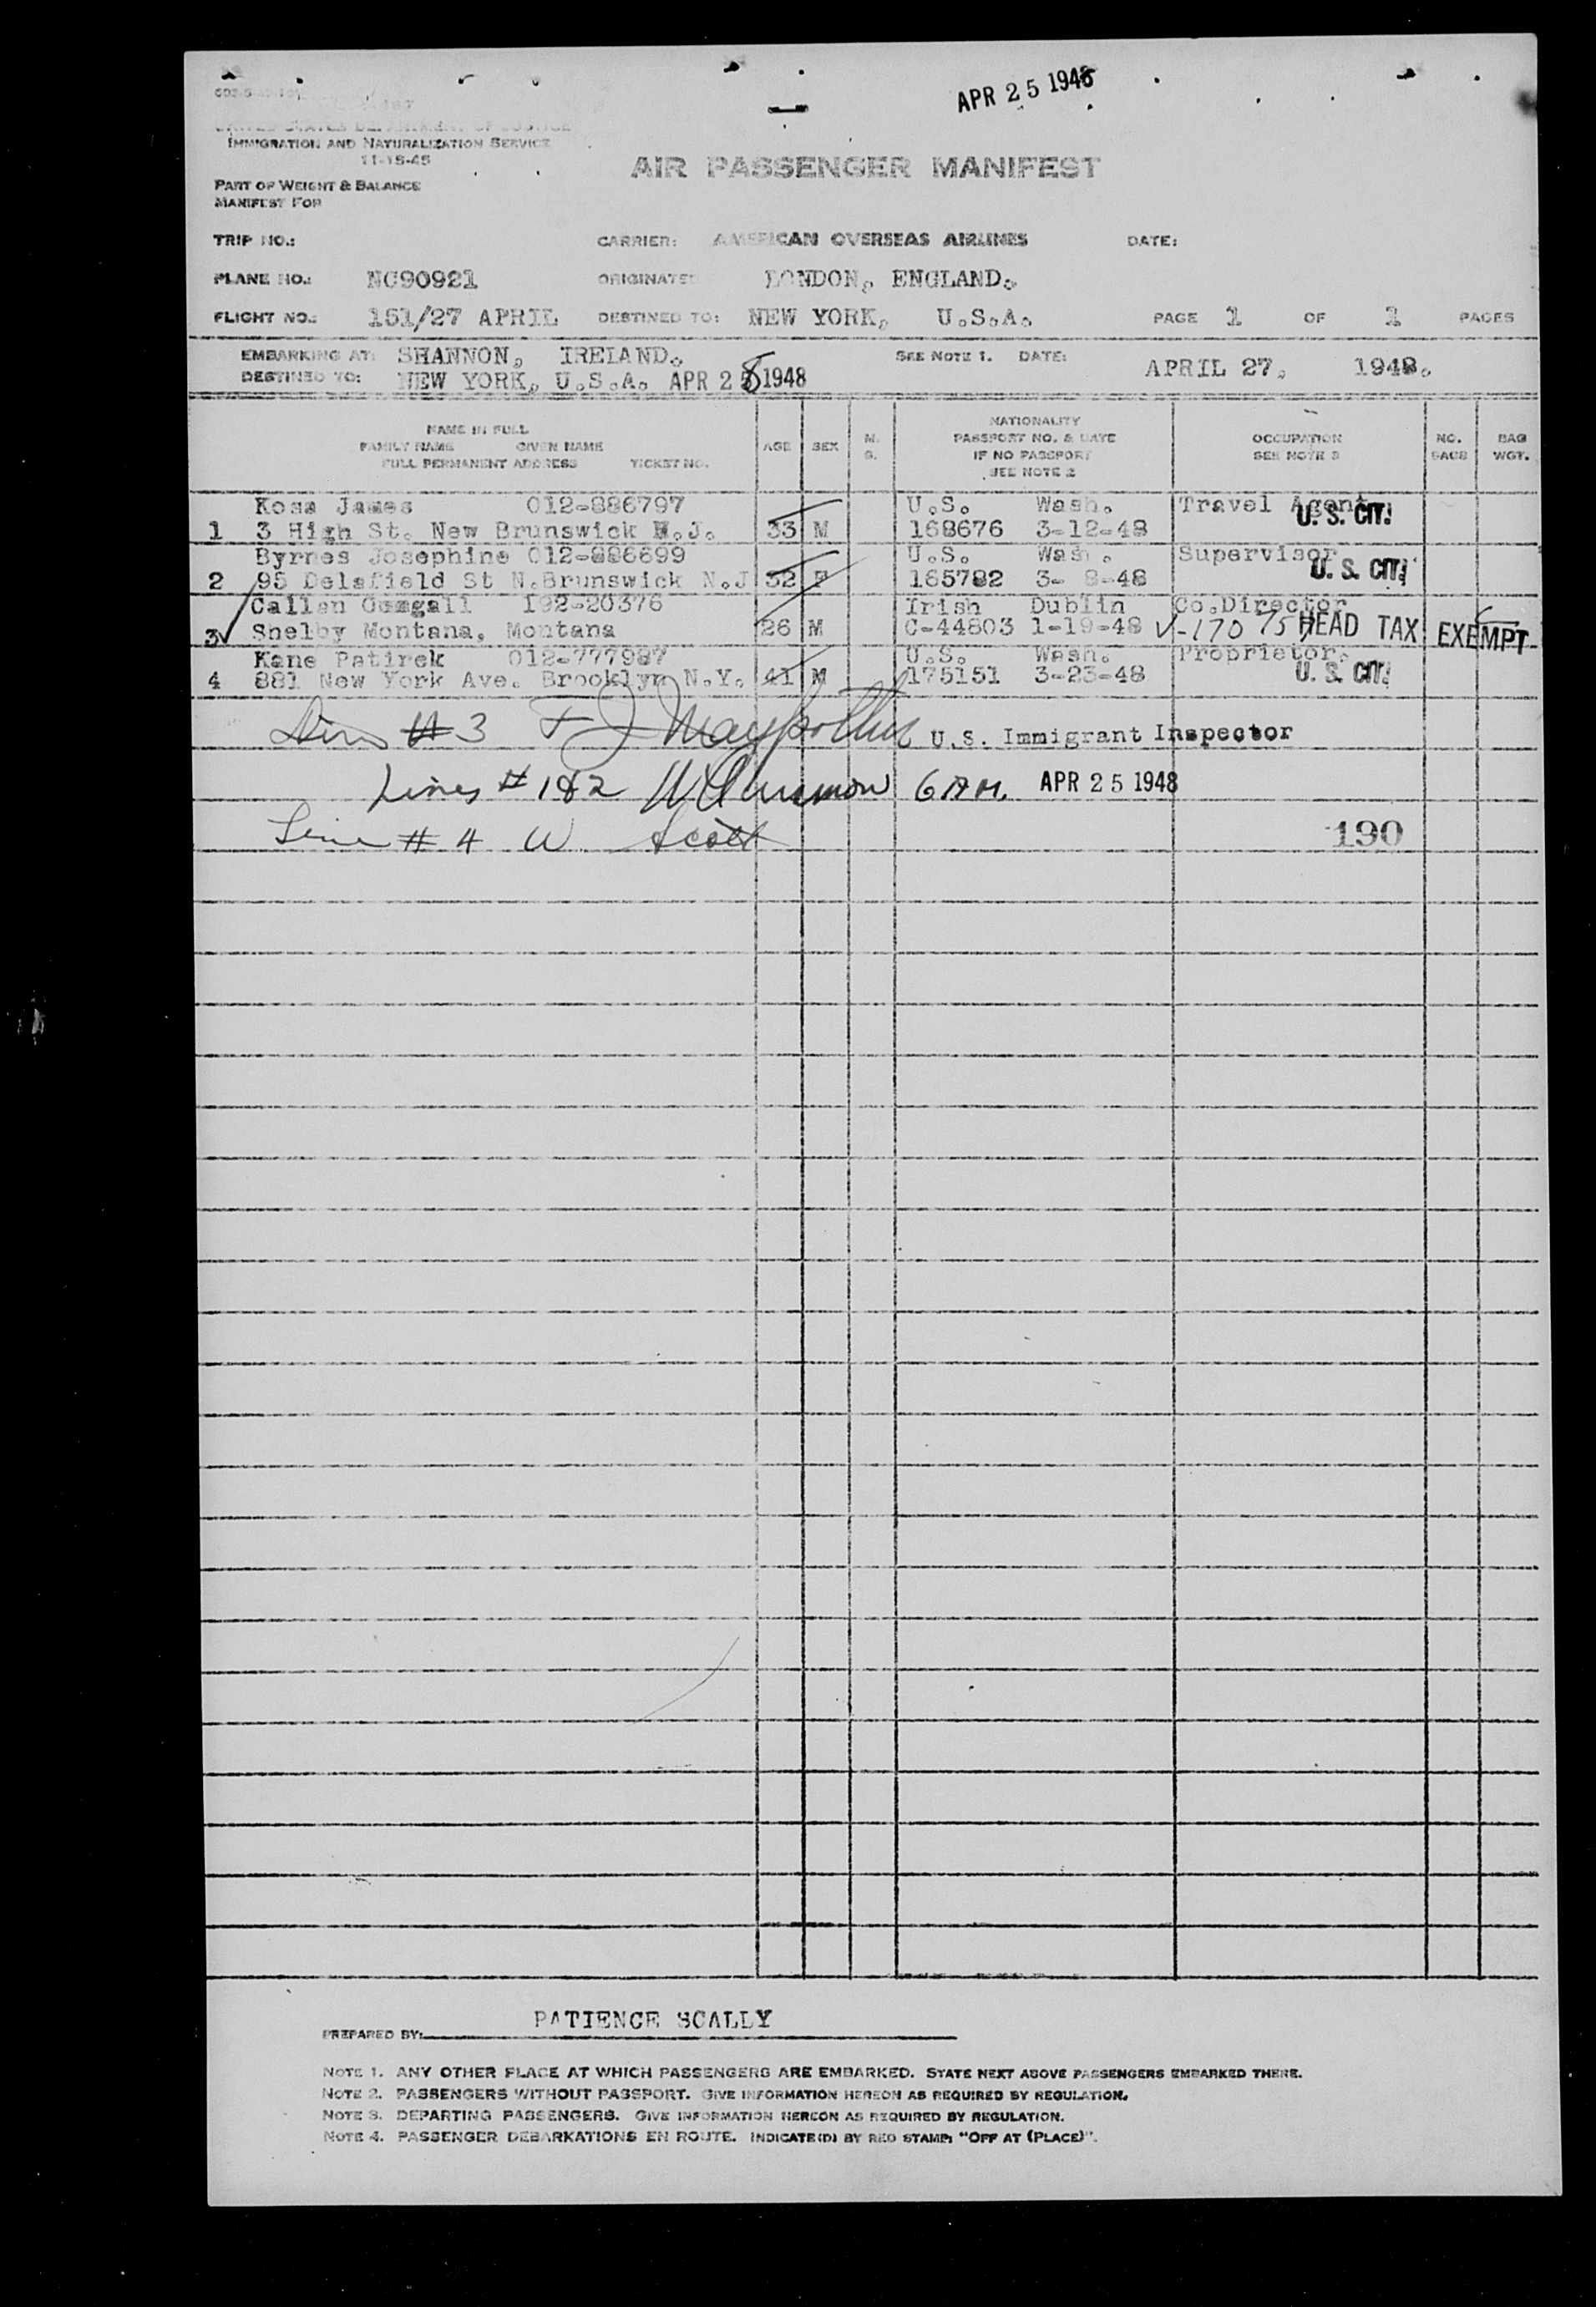 APR 25 1948
IMMIGRATION AND NATURALIZATION SERVICE
11-15-45
AIR PASSENGER MANIFEST
PART OF WEIGHT & BALANCE
MANIFEST FOR
TRIP NO.: CARRIER: AMERICAN OVERSEAS AIRLINES DATE:
PLANE NO.: NC90921 ORIGINATE LONDON, ENGLAND.
FLIGHT NO.: 151/27 APRIL DESTINED TO: NEW YORK, U.S.A. PAGE 1 OF 1 PAGES
EMBARKING AT: SHANNON, IRELAND. SEE NOTE 1. DATE: APRIL 27, 1948.
DESTINED TO: NEW YORK, U.S.A. APR 28 1948
NAME IN FULL
FAMILY NAME GIVEN NAME
FULL PERMANENT ADDRESS TICKET NO.
AGE SEX M. S.
NATIONALITY
PASSPORT NO. & DATE
IF NO PASSPORT
SEE NOTE 2
OCCUPATION
SEE NOTE 3
NO. BAGS
BAG WGT.
Kosa James 012-886797 U.S. Wash. Travel Agent U.S. CIT.
1 3 High St. New Brunswick N.J. 33 M 168676 3-12-48
Byrnes Josephine 012-886699 U.S. Wash. Supervisor U.S. CIT.
2 95 Delafield St N.Brunswick N.J 32 F 165782 3- 8-48
Callan 192-20376 Irish Dublin Co.Director
3 Shelby Montana, Montana 26 M C-44803 1-19-48 V-170 HEAD TAX EXEMPT
Kane Patirck 012-777987 U.S. Wash. Proprietor.
4 881 New York Ave. Brooklyn N.Y. 41 M 175151 3-23-48 U.S. CIT.
# 3 U.S. Immigrant Inspector
Lines # 1&2 APR 25 1948
Line # 4 W. Scott 190
PREPARED BY: PATIENCE SCALLY
NOTE 1. ANY OTHER PLACE AT WHICH PASSENGERS ARE EMBARKED. STATE NEXT ABOVE PASSENGERS EMBARKED THERE.
NOTE 2. PASSENGERS WITHOUT PASSPORT. GIVE INFORMATION HEREON AS REQUIRED BY REGULATION.
NOTE 3. DEPARTING PASSENGERS. GIVE INFORMATION HEREON AS REQUIRED BY REGULATION.
NOTE 4. PASSENGER DEBARKATIONS EN ROUTE. INDICATE(D) BY RED STAMP: "OFF AT (PLACE)".